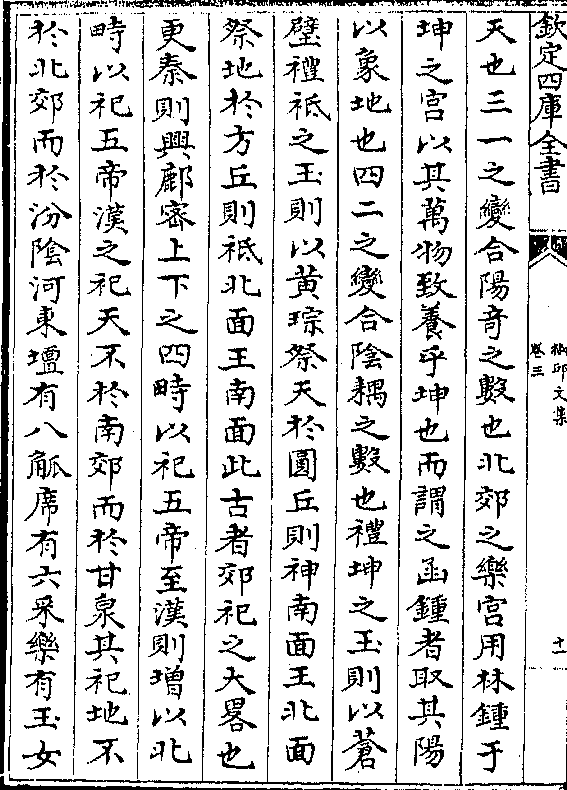 欽定四庫全書
卷三
十一
天也三一之變合陽竒之數也北郊之樂宫用林鍾于
坤之宫以其萬物致養乎坤也而謂之函鍾者取其陽
以象地也四二之變合陰耦之數也禮坤之玉則以蒼
璧禮祗之玉則以黄琮祭天於圜丘則神南面王北面
祭地於方丘則祗北面王南面此古者郊祀之大畧也
更秦則興鄜密上下之四畤以祀五帝至漢則增以北
畤以祀五帝漢之祀天不於南郊而於甘泉其祀地不
於北郊而於汾陰河東壇有八觚席有六采樂有玉女